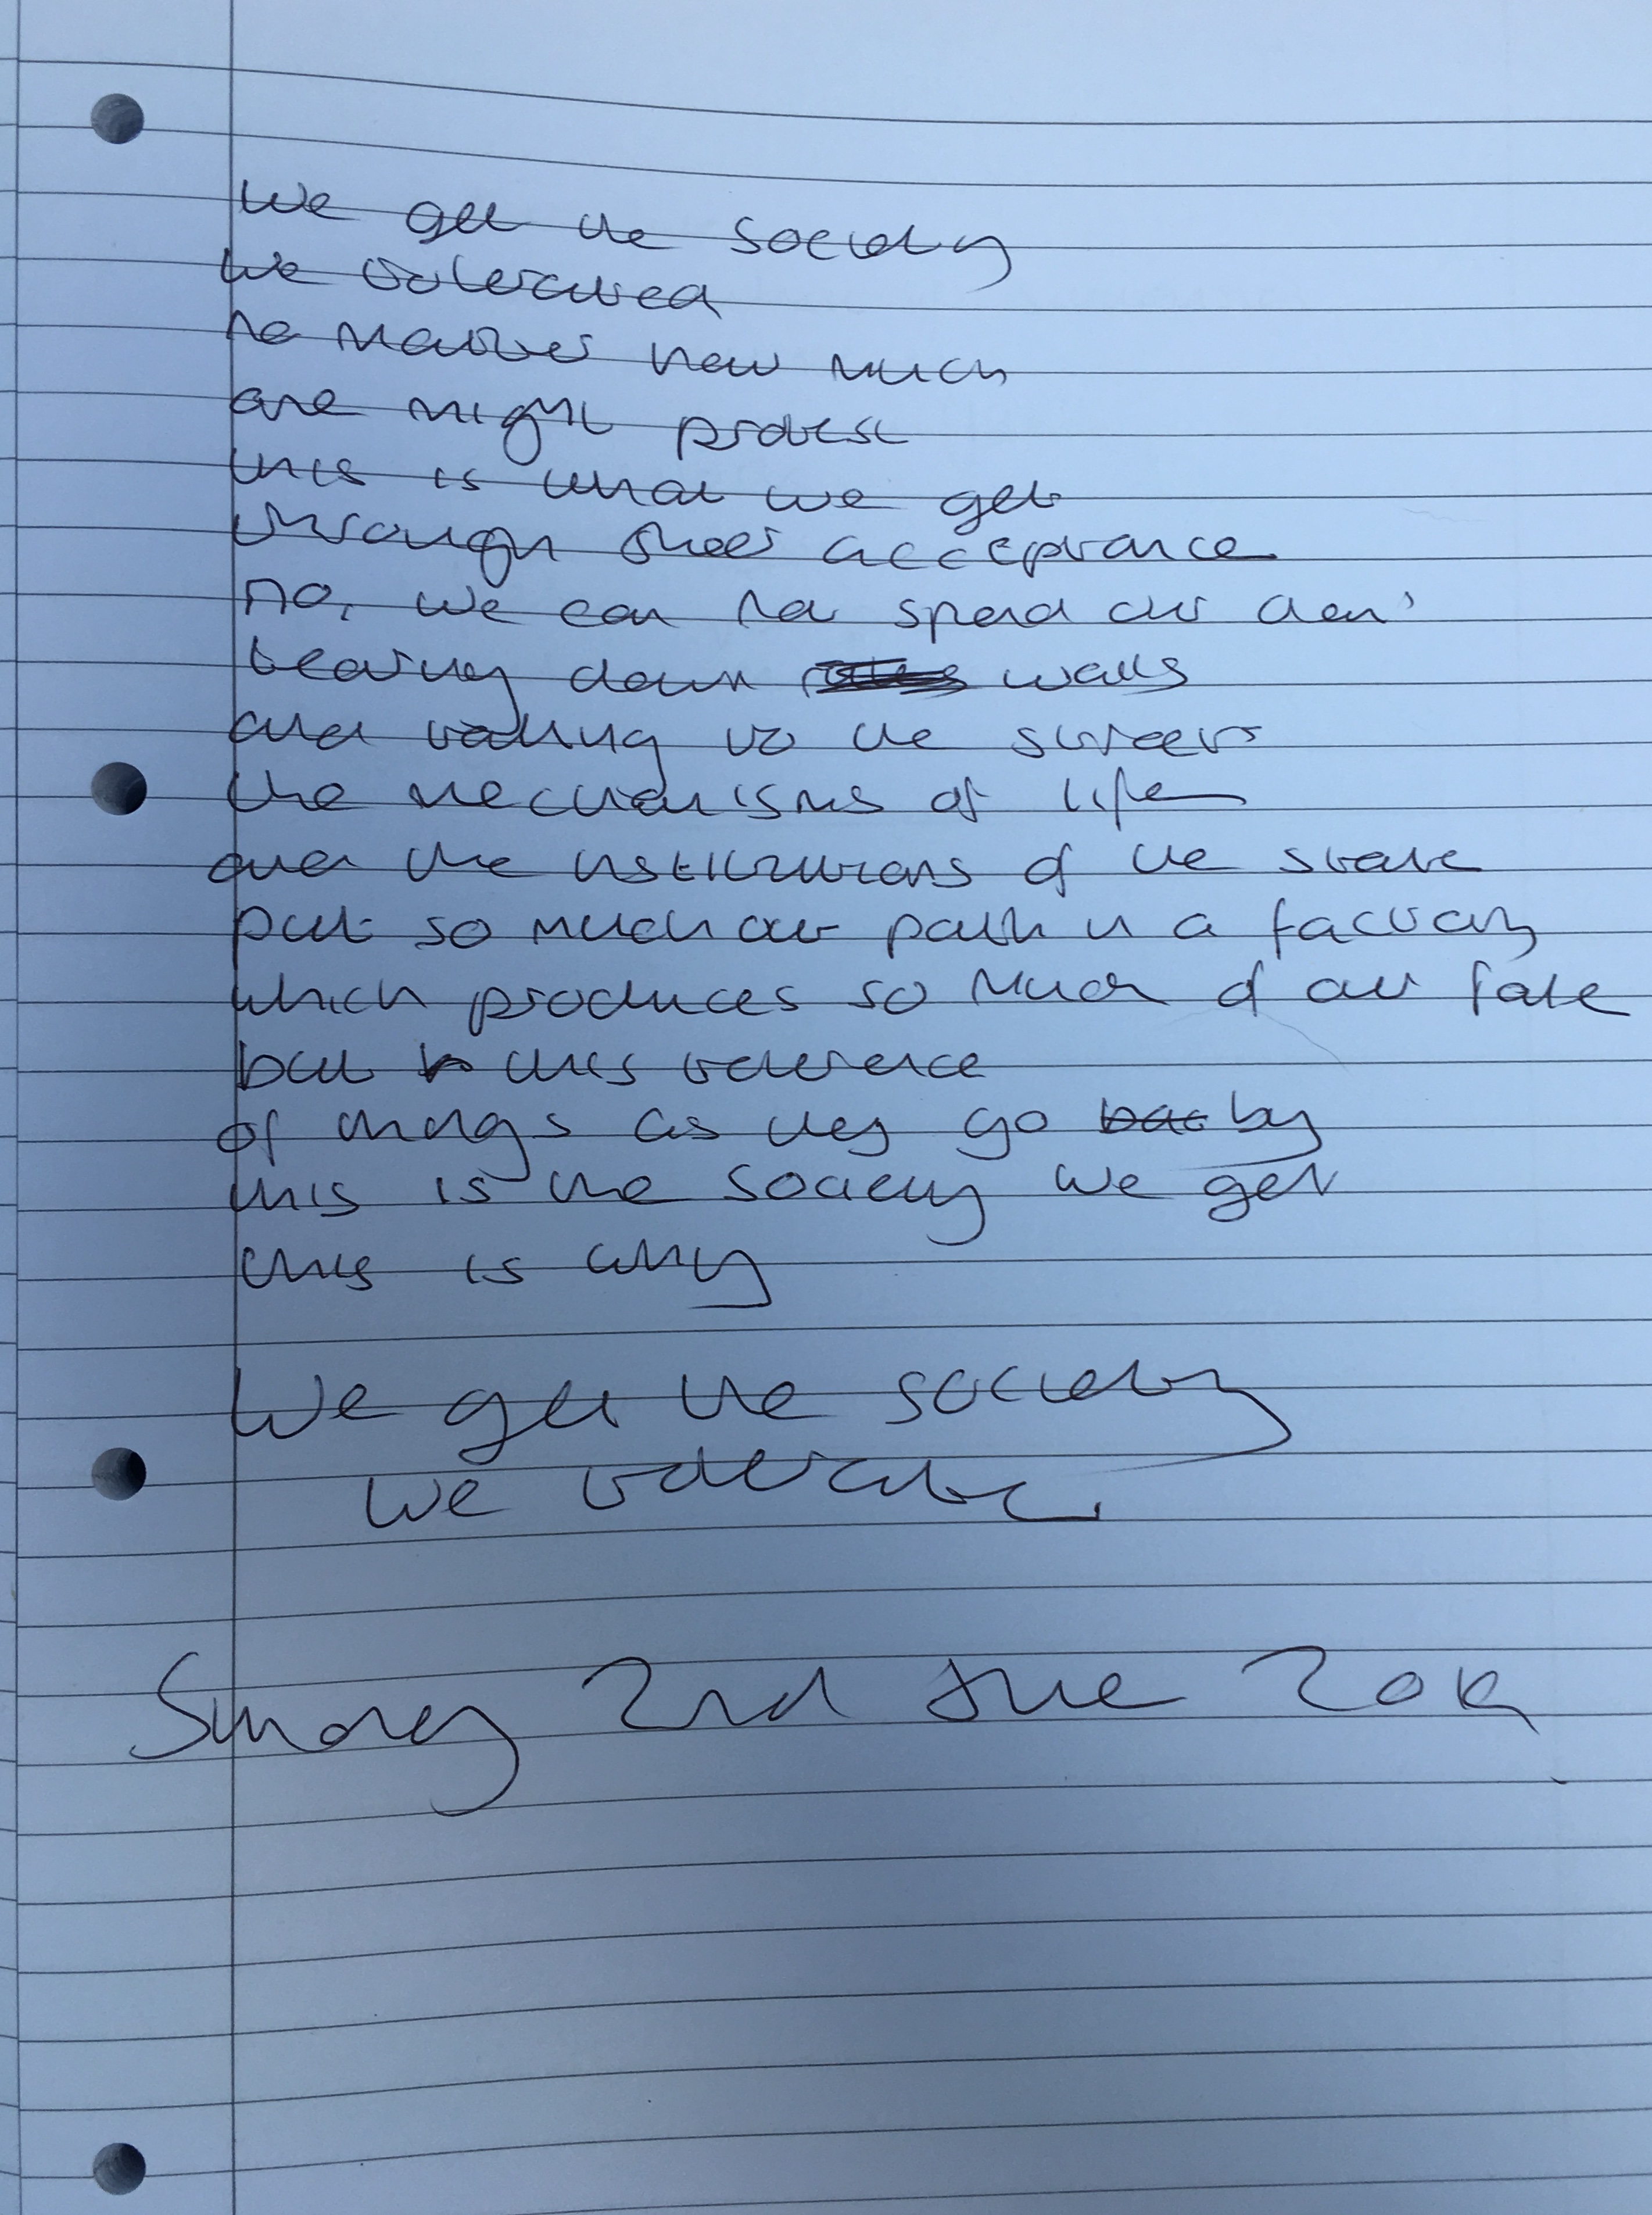 We get the society
we tolerated
no matter how much
one might protest
this is what we get
through sheer acceptance
no, we can not spend our
tearing down walls
and taking to the streets
the mechanisms of life
and the institutions of the state
put so much our path in a factory
which produces so much of our fate
but this tolerance
of things as they go by
this is the society we get
this is why
We get the society
we tolerate.
Sunday 2nd June 2019